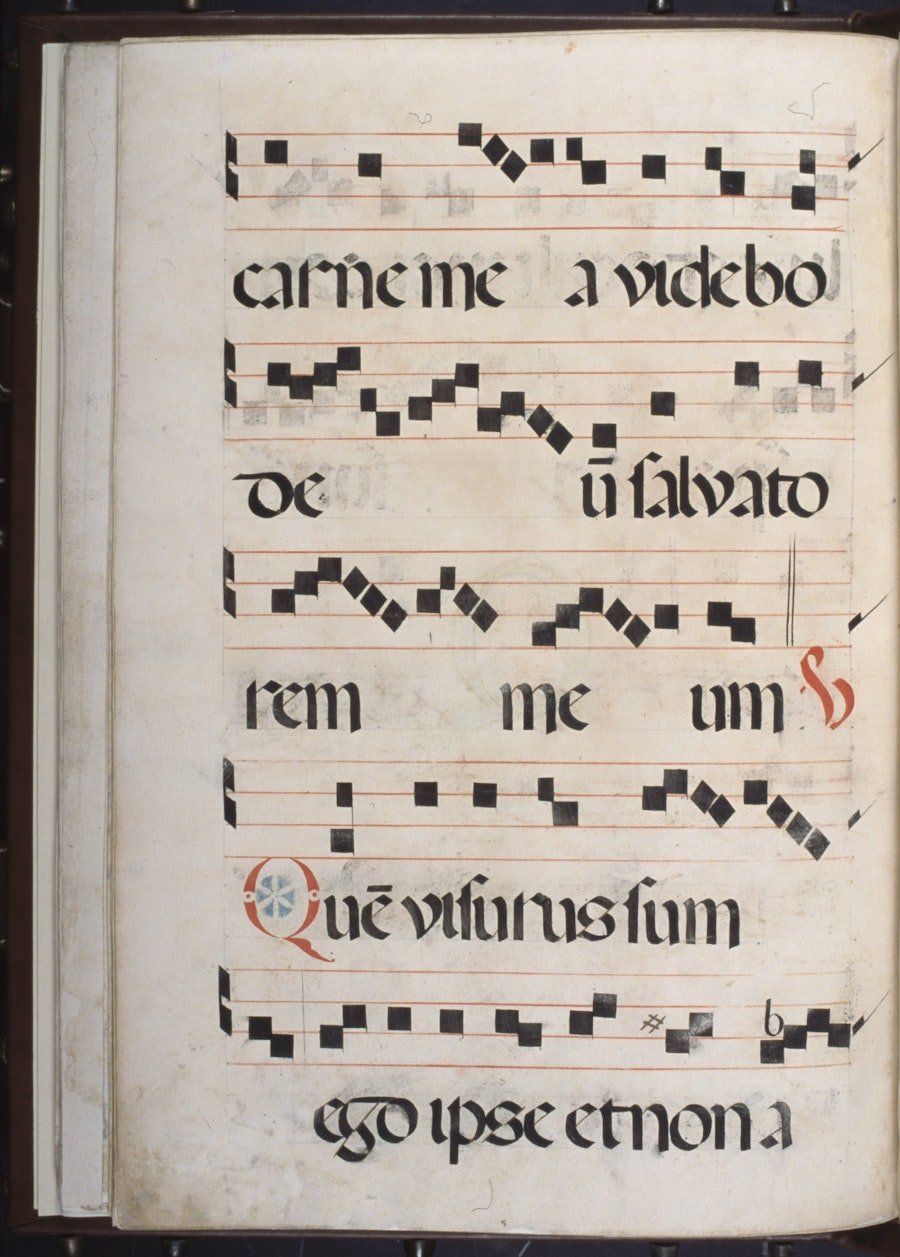 carne me a videbo
de ū salvato
rem me um V
Quē visurus sum
ego ipse et non a